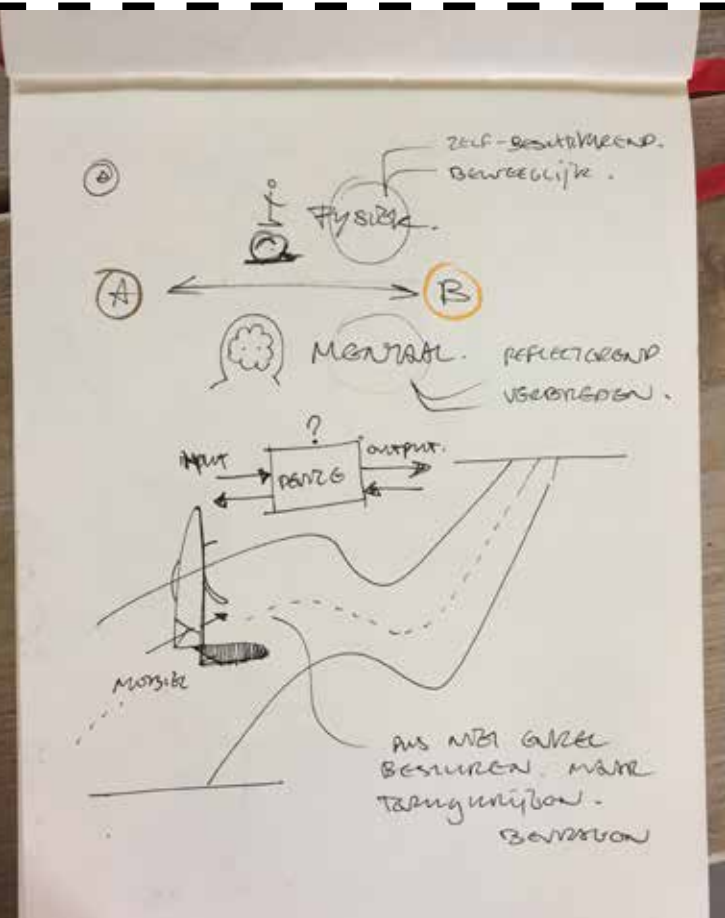 ZELF-BESTUREND.
BEWEEGLIJK.
FYSIEK.
A
B
MENTAAL.
REFLECTEREND
VERBREDEN.
?
INPUT
OUTPUT.
MOBIEL
DUS NIET ENKEL
BESTUREN. MAAR
TERUGKRIJGEN.